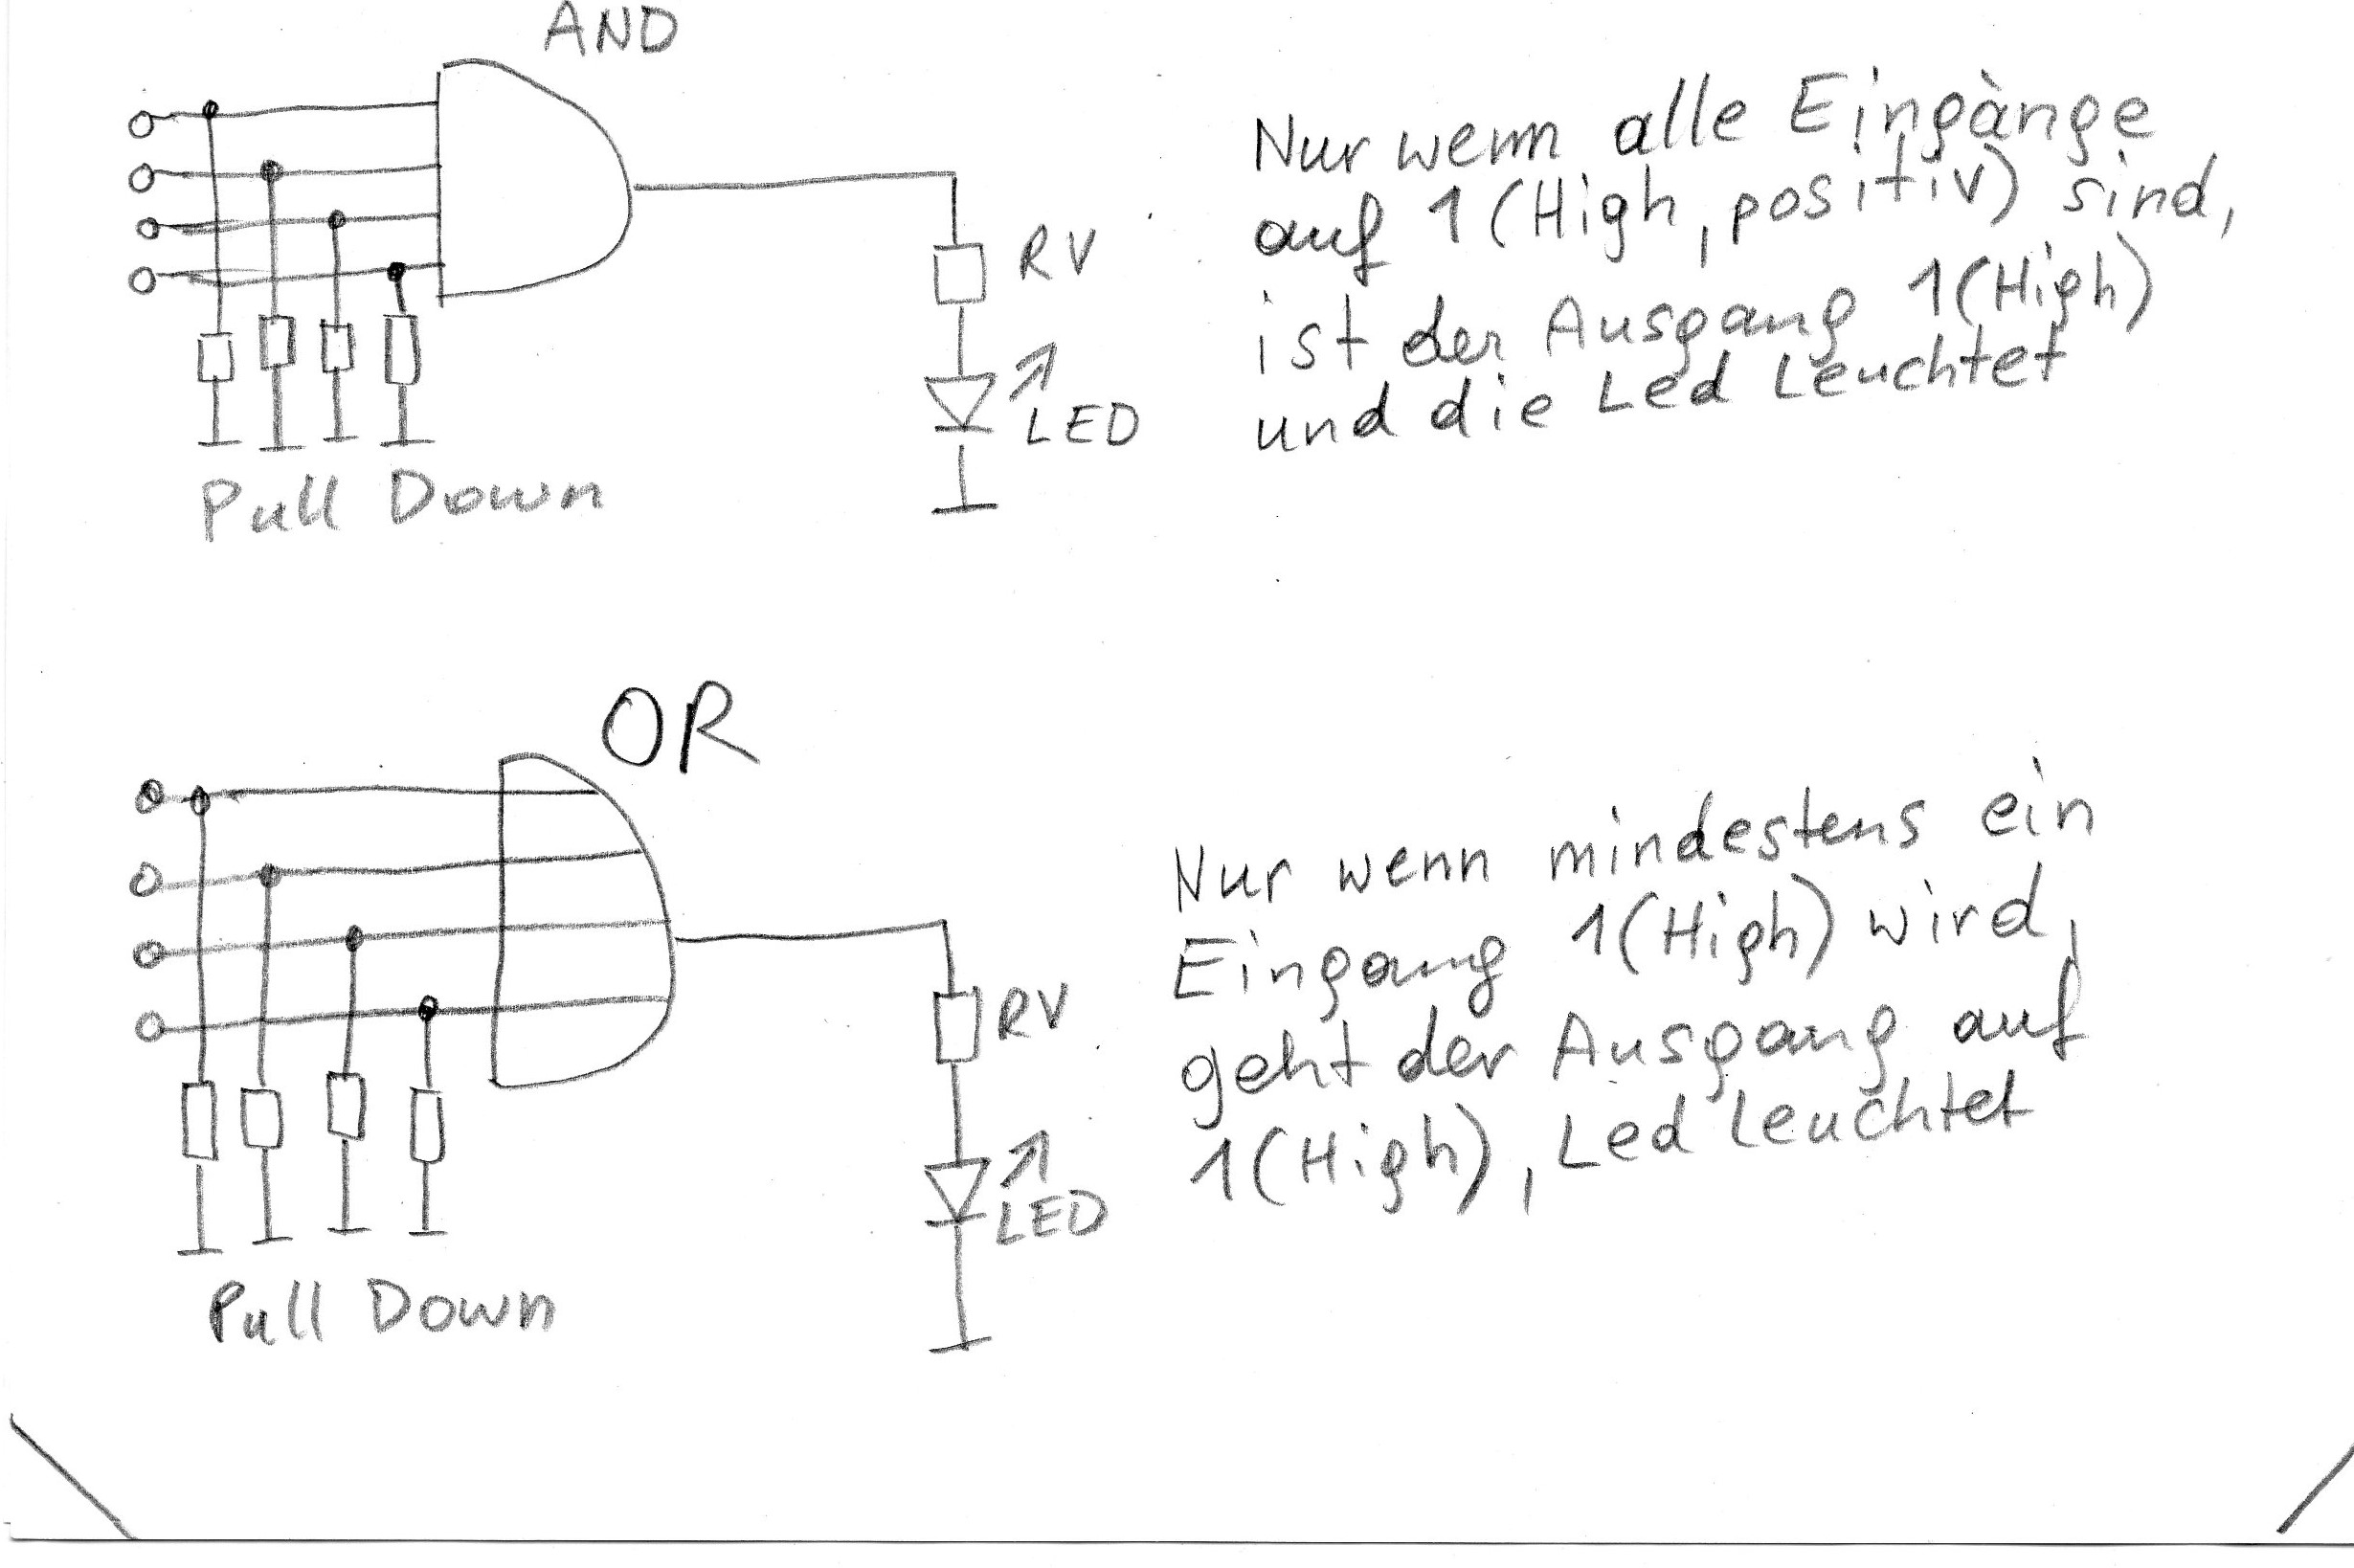 AND
Nur wenn alle Eingänge
auf 1 (High, positiv) sind,
ist der Ausgang 1 (High)
und die Led Leuchtet
RV
LED
Pull Down
OR
Nur wenn mindestens ein
Eingang 1 (High) wird,
geht der Ausgang auf
1 (High), Led Leuchtet
RV
LED
Pull Down